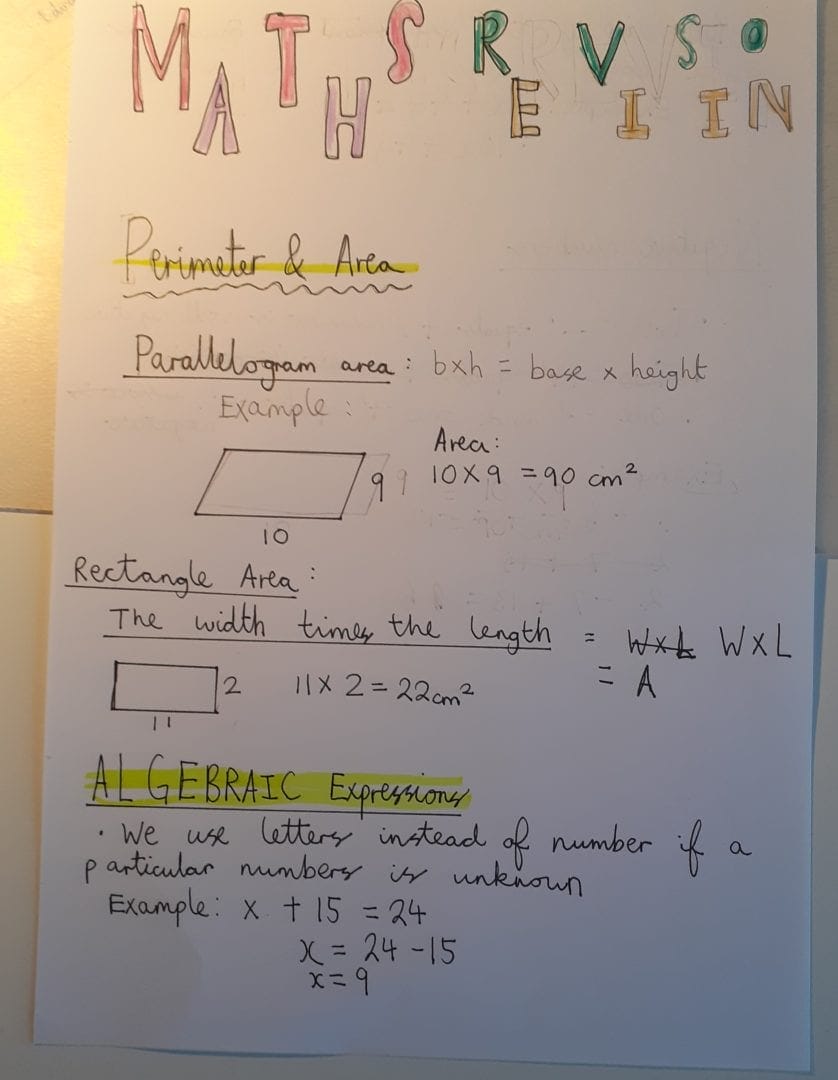 MATHS REVISION
Perimeter & Area
Parallelogram area : b×h = base × height
Example :
Area:
9 10×9 = 90 cm²
10
Rectangle Area :
The width times the length = W×L W×L
= A
2 11×2 = 22cm²
11
ALGEBRAIC Expressions
· We use letters instead of number if a
particular numbers is unknown
Example: x + 15 = 24
x = 24 - 15
x = 9